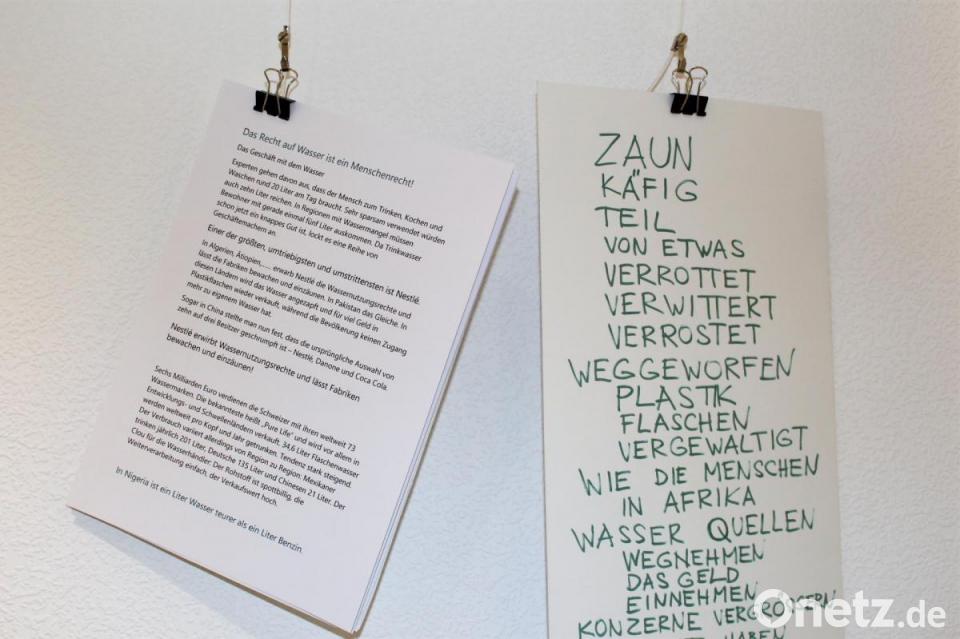 Das Recht auf Wasser ist ein Menschenrecht!
Das Geschäft mit dem Wasser
Experten gehen davon aus, dass der Mensch zum Trinken, Kochen und
Waschen rund 20 Liter am Tag braucht. Sehr sparsam verwendet würden
auch zehn Liter reichen. In Regionen mit Wassermangel müssen
Bewohner mit gerade einmal fünf Liter auskommen. Da Trinkwasser
schon jetzt ein knappes Gut ist, lockt es eine Reihe von
Geschäftemachern an.
Einer der größten, umtriebigsten und umstrittensten ist Nestlé.
In Algerien, Ätiopien,..... erwarb Nestlé die Wassernutzungsrechte und
lässt die Fabriken bewachen und einzäunen. In Pakistan das Gleiche. In
diesen Ländern wird das Wasser angezapft und für viel Geld in
Plastikflaschen wieder verkauft, während die Bevölkerung keinen Zugang
mehr zu eigenem Wasser hat.
Sogar in China stellte man nun fest, dass die ursprüngliche Auswahl von
zehn auf drei Besitzer geschrumpft ist – Nestlé, Danone und Coca Cola.
Nestlé erwirbt Wassernutzungsrechte und lässt Fabriken
bewachen und einzäunen!
Sechs Milliarden Euro verdienen die Schweizer mit ihren weltweit 73
Wassermarken. Die bekannteste heißt „Pure Life" und wird vor allem in
Entwicklungs- und Schwellenländern verkauft. 34,6 Liter Flaschenwasser
werden weltweit pro Kopf und Jahr getrunken. Tendenz stark steigend.
Der Verbrauch variiert allerdings von Region zu Region: Mexikaner
trinken jährlich 201 Liter, Deutsche 135 Liter und Chinesen 21 Liter. Der
Clou für die Wasserhändler: Der Rohstoff ist spottbillig, die
Weiterverarbeitung einfach, der Verkaufswert hoch.
In Nigeria ist ein Liter Wasser teurer als ein Liter Benzin.
ZAUN
KÄFIG
TEIL
VON ETWAS
VERROTTET
VERWITTERT
VERROSTET
WEGGEWORFEN
PLASTIK
FLASCHEN
VERGEWALTIGT
WIE DIE MENSCHEN
IN AFRIKA
WASSER QUELLEN
WEGNEHMEN
DAS GELD
EINNEHMEN
KONZERNE VERGRÖSSERN
HABEN
Onetz.de